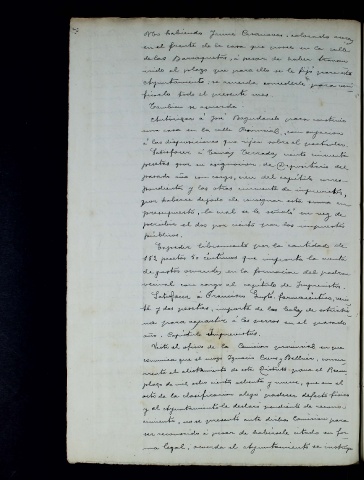 No habiendo Jaime Casanovas, colocado
en el frente de la casa que posee en la calle
de las Barraquetas, a pesar de haber
el plazo que para ello se le fijó por este
Ayuntamiento, se acuerda concederle para
todo el presente mes.
Tambien se acuerda.
Autorizar á José para construir
una casa en la calle Provincial, con sujecion
á las disposiciones que rijen sobre el particular.
Satisfacer á ciento cincuenta
pesetas por su asignacion de Depositario del
pasado año con cargo, al capítulo
y las otras cincuenta de imprevistos,
por haberse dejado de consignar esta suma en
presupuesto, la cual se le señaló en vez de
el dos por ciento por los impuestos
públicos.
Expedir libramiento por la cantidad de
152 pesetas 50 céntimos que importa la cuenta
de gastos ocurridos en la formacion del padron
vecinal con cargo al capítulo de Imprevistos.
Satisfacer á Francisco farmacéutico,
y dos pesetas, importe de las bolas de estricnina
para repartir á los perros en el pasado
año. Capítulo Imprevistos.
Visto el oficio de la Comision provincial en que
comunica que el mozo Ignacio y
al alistamiento de este Distrito para el Reemplazo
de mil ocho cientos ochenta y nueve, que en el
acto de la clasificacion alegó padecer defecto físico
y el Ayuntamiento le declaró pendiente de reconocimiento,
no se presentó ante dicha Comision para
ser reconocido á pesar de habérsele citado en forma
legal, acuerda el Ayuntamiento se instruya